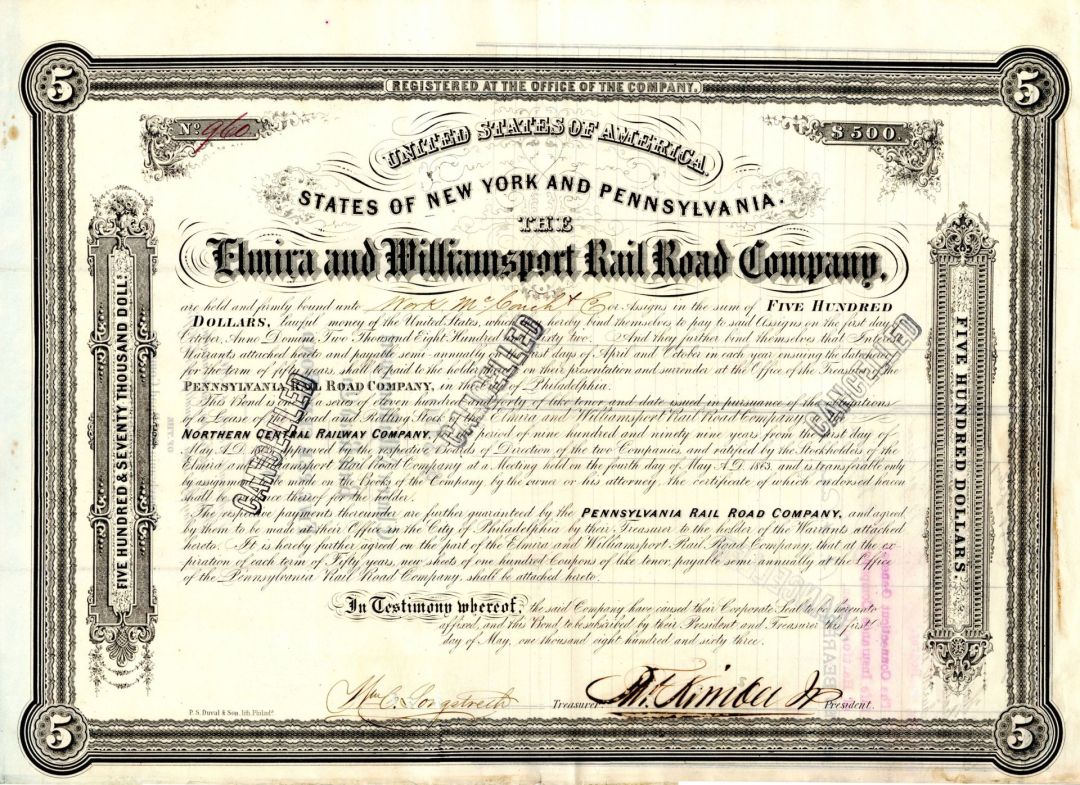 REGISTERED AT THE OFFICE OF THE COMPANY.
5
5
No. 960
$500.
UNITED STATES OF AMERICA.
STATES OF NEW YORK AND PENNSYLVANIA.
THE
Elmira and Williamsport Rail Road Company,
are held and firmly bound unto Work, McCouch & Co or Assigns in the sum of FIVE HUNDRED
DOLLARS, lawful money of the United States, which hereby bind themselves to pay to said Assigns on the first day
October, Anno Domini, Two Thousand Eight Hundred sixty two. And they further bind themselves that Interest
Warrants attached hereto and payable semi-annually on first days of April and October in each year ensuing the date
for the term of fifty years, shall be paid to the holder on their presentation and surrender at the Office of the Treasurer the
PENNSYLVANIA RAIL ROAD COMPANY, in the City of Philadelphia.
This Bond is one of a series of eleven hundred and forty of like tenor and date issued in pursuance of the
of a Lease of Road and Rolling Stock of the Elmira and Williamsport Rail Road Company
NORTHERN CENTRAL RAILWAY COMPANY, period of nine hundred and ninety nine years from the first day of
May A.D. approved by the respective Boards of Direction of the two Companies, and ratified by the Stockholders of the
Elmira and Williamsport Rail Road Company at a Meeting held on the fourth day of May A.D. 1863, and is transferable only
by assignment made on the Books of the Company by the owner or his attorney, the certificate of which endorsed hereon
shall be thereof for the holder.
The respective payments thereunder are further guaranteed by the PENNSYLVANIA RAIL ROAD COMPANY, and agreed
by them to be made at their Office in the City of Philadelphia by their Treasurer to the holder of the Warrants attached
hereto. It is hereby further agreed on the part of the Elmira and Williamsport Rail Road Company, that at the ex-
piration of each term of Fifty years, new sheets of one hundred Coupons of like tenor, payable semi-annually at the Office
of the Pennsylvania Rail Road Company, shall be attached hereto.
In Testimony whereof, the said Company have caused their Corporate Seal to be hereunto
affixed, and this Bond to be subscribed by their President and Treasurer the first
day of May, one thousand eight hundred and sixty three.
Wm C. Longstreth Treasurer. T. Kimber Jr President.
P. S. Duval & Son, lith. Philada.
FIVE HUNDRED & SEVENTY THOUSAND DOLLS.
FIVE HUNDRED DOLLARS.
CANCELLED
CANCELLED
CANCELLED
5
5